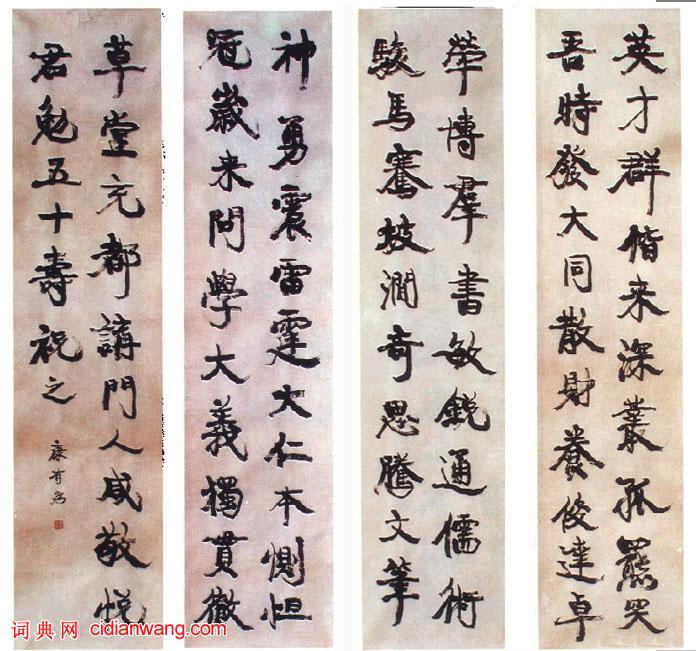 英才群偕来深叢孤羆
吾時發大同散財養俊達卓
犖博羣書敏銳通儒術
駿馬騫坡澗奇思騰文筆
神勇震雷霆大仁本惻怛
冠歲来問學大義獨貫徹
草堂充都講門人咸敬悦
君勉五十壽祝之
康有為
词典网 cidianwang.com